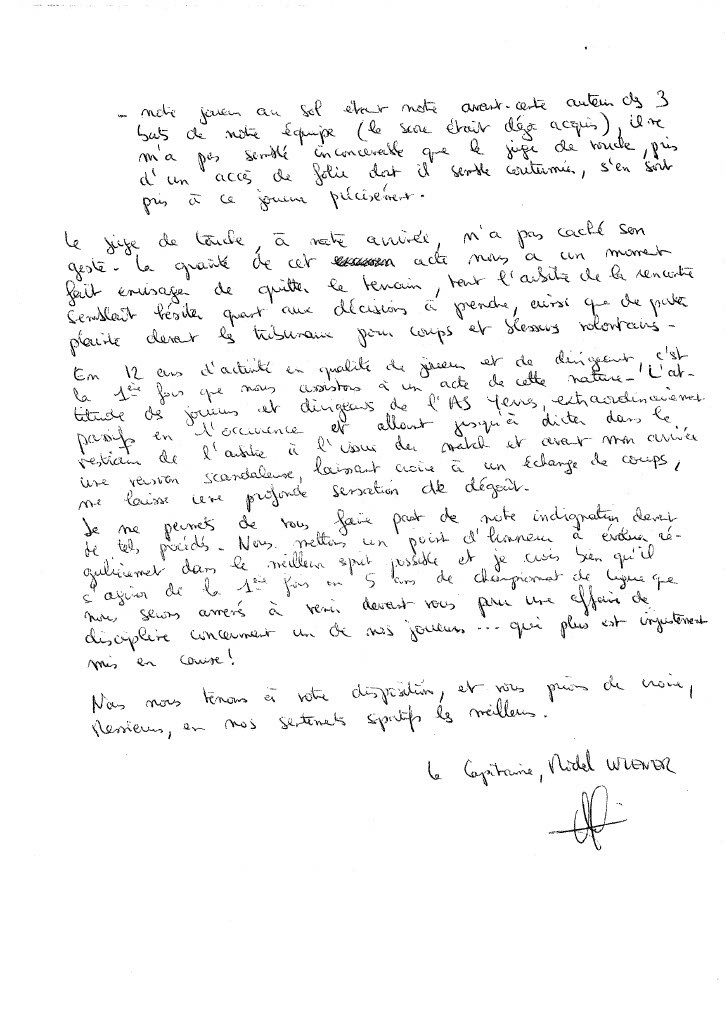 - notre joueur au sol étant notre avant-centre auteur des 3
buts de notre équipe (le score était déjà acquis), il ne
m'a pas semblé inconcevable que le juge de touche, pris
d'un accès de folie dont il semble coutumier, s'en soit
pris à ce joueur précisément.
Le juge de touche, à notre arrivée, n'a pas caché son
geste. La gravité de cet acte nous a un moment
fait envisager de quitter le terrain, tant l'arbitre de la rencontre
semblait hésiter quant aux décisions à prendre, ainsi que de porter
plainte devant les tribunaux pour coups et blessures volontaires.
En 12 ans d'activité en qualité de joueur et de dirigeant, c'est
la 1ère fois que nous assistons à un acte de cette nature. L'at-
titude des joueurs et dirigeants de l'AS Yerres, extraordinairement
passifs en l'occurence et allant jusqu'à dicter dans le
vestiaire de l'arbitre à l'issue du match et avant mon arrivée
une version scandaleuse, laissant croire à un échange de coups,
me laisse une profonde sensation de dégoût.
Je me permets de vous faire part de notre indignation devant
de tels procédés. Nous mettons un point d'honneur à évoluer ré-
gulièrement dans le meilleur esprit possible et je crois bien qu'il
s'agisse de la 1ère fois en 5 ans de championnat de ligue que
nous soyons amenés à venir devant vous pour une affaire de
discipline concernant un de nos joueurs... qui plus est injustement
mis en cause!
Nous nous tenons à votre disposition, et vous prions de croire,
Messieurs, en nos sentiments sportifs les meilleurs.
Le Capitaine, Michel